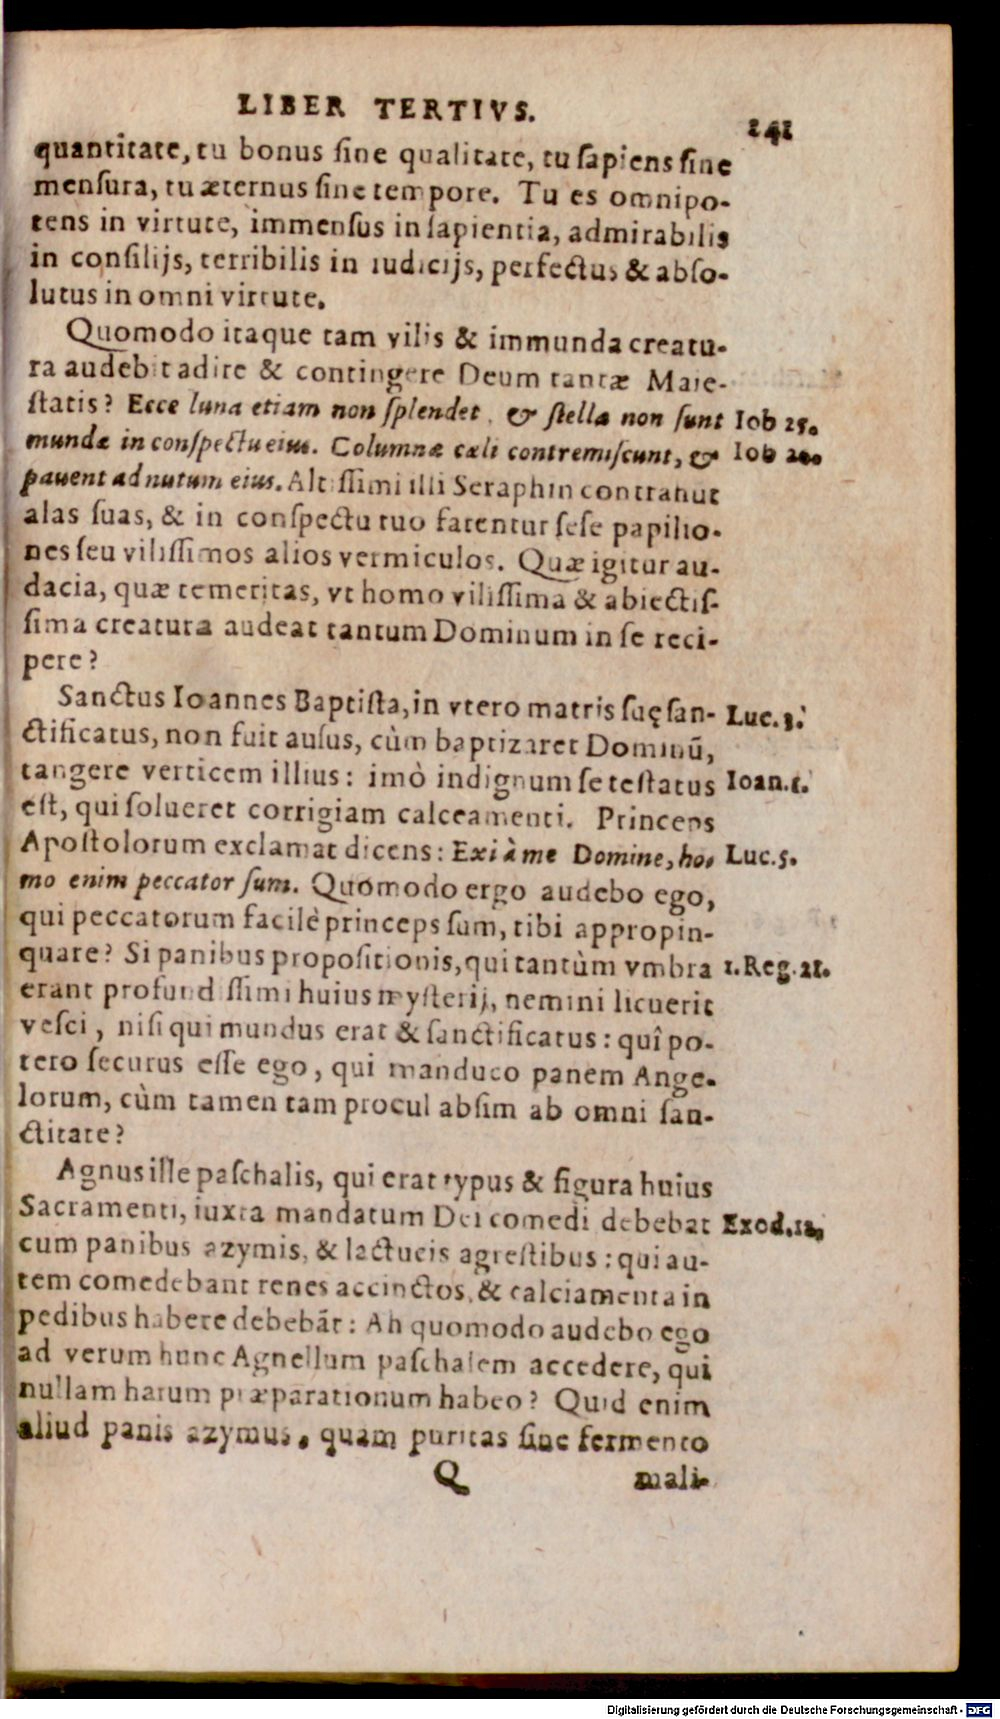 LIBER TERTIVS.
241
quantitate, tu bonus ſine qualitate, tu ſapiens ſine
menſura, tu æternus ſine tempore. Tu es omnipo-
tens in virtute, immenſus in ſapientia, admirabilis
in conſilijs, terribilis in iudicijs, perfectus & abſo-
lutus in omni virtute.
Quomodo itaque tam vilis & immunda creatu-
ra audebit adire & contingere Deum tantæ Maie-
ſtatis? Ecce luna etiam non ſplendet, & ſtella non ſunt Iob 25.
mundæ in conſpectu eius. Columnæ cæli contremiſcunt, & Iob
pauent ad nutum eius. Altiſſimi illi Seraphin contrahut
alas ſuas, & in conſpectu tuo fatentur ſeſe papilio-
nes ſeu viliſſimos alios vermiculos. Quæ igitur au-
dacia, quæ temeritas, vt homo viliſſima & abiectiſ-
ſima creatura audeat tantum Dominum in ſe reci-
pere?
Sanctus Ioannes Baptiſta, in vtero matris ſuę ſan- Luc. 3.
ctificatus, non fuit auſus, cùm baptizaret Dominū,
tangere verticem illius: imò indignum ſe teſtatus Ioan. 1.
eſt, qui ſolueret corrigiam calceamenti. Princeps
Apoſtolorum exclamat dicens: Exi à me Domine, ho- Luc. 5.
mo enim peccator ſum. Quomodo ergo audebo ego,
qui peccatorum facilè princeps ſum, tibi appropin-
quare? Si panibus propoſitionis, qui tantùm vmbra 1. Reg. 21.
erant profundiſſimi huius myſterij, nemini licuerit
veſci, niſi qui mundus erat & ſanctificatus: quî po-
tero ſecurus eſſe ego, qui manduco panem Ange-
lorum, cùm tamen tam procul abſim ab omni ſan-
ctitate?
Agnus ille paſchalis, qui erat typus & figura huius
Sacramenti, iuxta mandatum Dei comedi debebat Exod. 12,
cum panibus azymis, & lactucis agreſtibus: qui au-
tem comedebant renes accinctos, & calciamenta in
pedibus habere debebāt: Ah quomodo audebo ego
ad verum hunc Agnellum paſchalem accedere, qui
nullam harum præparationum habeo? Quid enim
aliud panis azymus, quam puritas ſine fermento
Q mali-
Digitalisierung gefördert durch die Deutsche Forschungsgemeinschaft - DFG